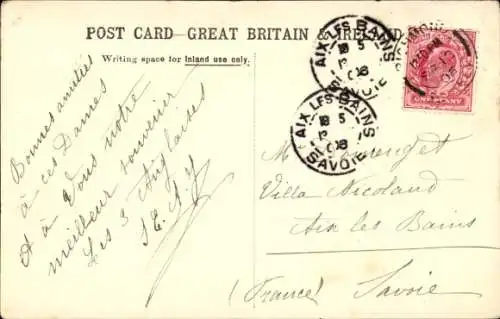 POST CARD—GREAT BRITAIN & IRELAND
Writing space for Inland use only.
Bonnes amitiés
à ces Dames
& à Vous notre
meilleur souvenir
Les 3 Anglaises
AIX LES BAINS
18 5
08
SAVOIE
AIX LES BAINS
18 5
08
SAVOIE
RICHMOND
ONE PENNY
M
Villa Nicoland
Aix les Bains
(France) Savoie